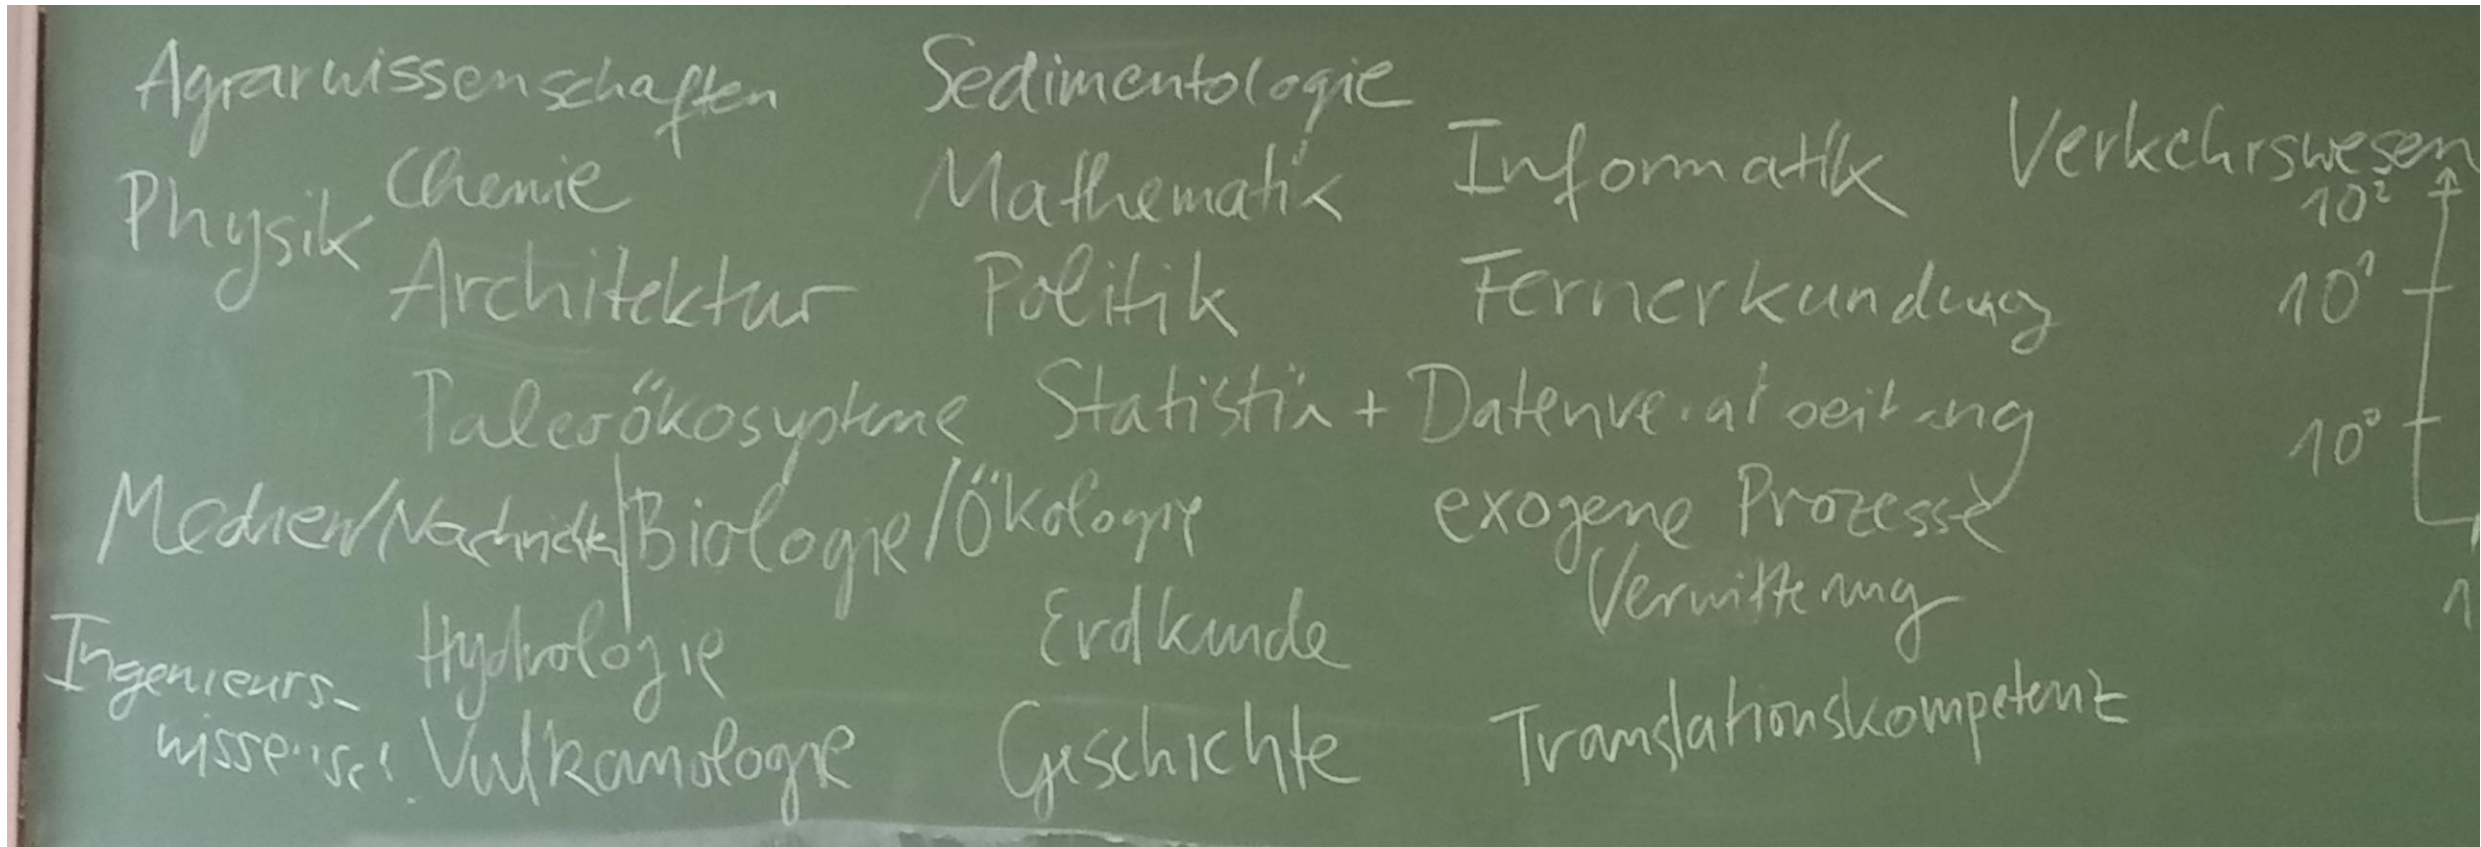 Agrarwissenschaften Sedimentologie
Physik Chemie Mathematik Informatik Verkehrswesen
10²
Architektur Politik Fernerkundung 10¹
Paleoökosysteme Statistik + Datenverarbeitung 10⁰
Medien/Nachrichten Biologie/Ökologie exogene Prozesse
Verwitterung
Hydrologie Erdkunde 1
Ingenieurs-
wissensch. Vulkanologie Geschichte Translationskompetenz